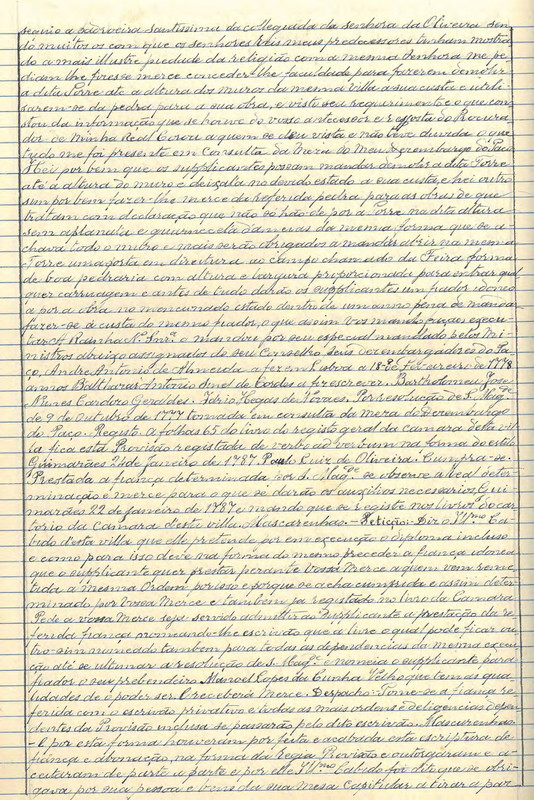 seguio a Padroeira Santissima da collegiada da senhora da Oliveira sen
do muitos os com que os senhores Reis meus predecessores tinham mostra
do a mais illustre piedade da religião com a mesma Senhora me pe
diram lhe fizesse merce conceder-lhe faculdade para fazerem demolir
a dita Torre até a altura dos muros da mesma villa a sua custa e utili
sarem-se da pedra para a sua obra, e visto seu requerimento e o que cons
tou da informação que se houve do vosso antecessor e Resposta do Procura
dor de Minha Real Coroa a quem se deu vista e não teve duvida o que
tudo me foi presente em Consulta da Meza do Meu Dezembargo do Paço
Hei por bem que os supplicantes possam mandar demolir a dita Torre
até a altura do muro e deixal-a no devido estado a sua custa, e hei outro
sim por bem fazer-lhe merce da referida pedra para as obras de que
tratam com declaração que não só hão de por a Torre na dita altura
sem aplanata e guarnecel-a d'ameias da mesma forma que se a-
chava todo o mutro e mais serão obrigados a mandar abrir na mesma
Torre uma porta em direitura ao campo chamado da Feira forma
de boa pedraria com altura e largura proporcionada para entrar qual
quer carruagem e antes de tudo darão os supplicantes um fiador idoneo
a por a obra no mencionado estado dentro de um anno pena de mandar
fazer-se á custa do mesmo fiador, o que assim vos mando façaes execu
tar. A Rainha N. Snrª. o mandou por seu especial mandado pelos Mi-
nistros abaixo assignados do seu Conselho, seus dezembargadores do Pa
ço, Andre Antonio de Almeida a fez em Lisboa a 18 de fevereiro de 1778
annos Balthazar Antonio Sinel de Cordes a fiz escrever. Bartholomeu José
Nunes Cardozo Geraldes. José Ricalde Por resolução de S. Magᵉ
de 9 de outubro de 1777 tomada em consulta da meza do Dezembargo
do Paço. Registo. A folhas 65 do livro do registo geral da camara desta vil
la fica esta Provisão registada de verbo ad verbum na forma do estilo
Guimarães 24 de janeiro de 1787. Paulo Luiz de Oliveira. Cumpra-se.
Prestada a fiança determinada por S. Magᵈᵉ se observe a Real deter-
minação e merce para o que se darão os auxilios necessarios, Gui
marães 22 de janeiro de 1787 e mando que se registe nos livros do car
torio da Camara d'esta villa. Mascarenhas. Petição. Diz o Illᵐᵒ Ca-
bido desta villa que elle pretende por em execução o diploma incluso
e como para isso deve na forma do mesmo preceder a fiança idonea
que o supplicante quer prestar perante vossa Merce a quem vem reme
tida a mesma Ordem por isso e porque se acha cumprida e assim deter-
minado por Vossa Merce e tambem ja registado no livro da Camara
Pede a vossa Merce seja servido admittir ao supplicante a prestação da re
ferida fiança nomeando-lhe escrivão que a lavre o qual póde ficar ou
tro-sim nomeado tambem para todas as dependencias da mesma execu
ção até se ultimar a resolução de S. Magᵉ. e nomeia o supplicante para
fiador o seu prebendeiro Manoel Lopes da Cunha Velho que tem as qua
lidades de o poder ser. E receberá Merce. Despacho. Tome-se a fiança re
ferida com o escrivão privativo e todas as mais ordens e deligencias depen
dentes da Provisão inclusa se passarão pelo dito escrivão. Mascarenhas.
E por esta forma houveram por feita e acabada esta escriptura de
fiança e abonação, na forma da Regia Provisão e outorgaram e a-
ceitaram de parte a parte e por elle Illᵐᵒ Cabido foi dito que se obri
gava por sua pessoa e bens da sua Mesa Capitular a tirar a paz